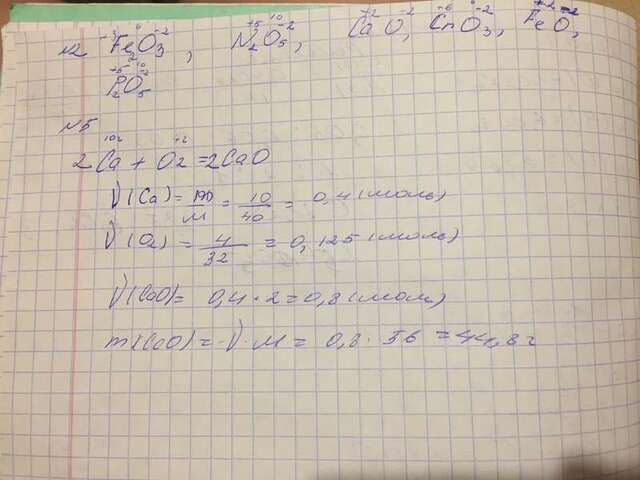 №2 Fe2O3, N2O5, CaO, CrO3, FeO,
P2O5
№5
2Ca + O2 = 2CaO
ν(Ca) = m/M = 10/40 = 0,4 (моль)
ν(O2) = 4/32 = 0,125 (моль)
ν(CaO) = 0,4 · 2 = 0,8 (моль)
m(CaO) = ν · M = 0,8 · 56 = 44,8 г